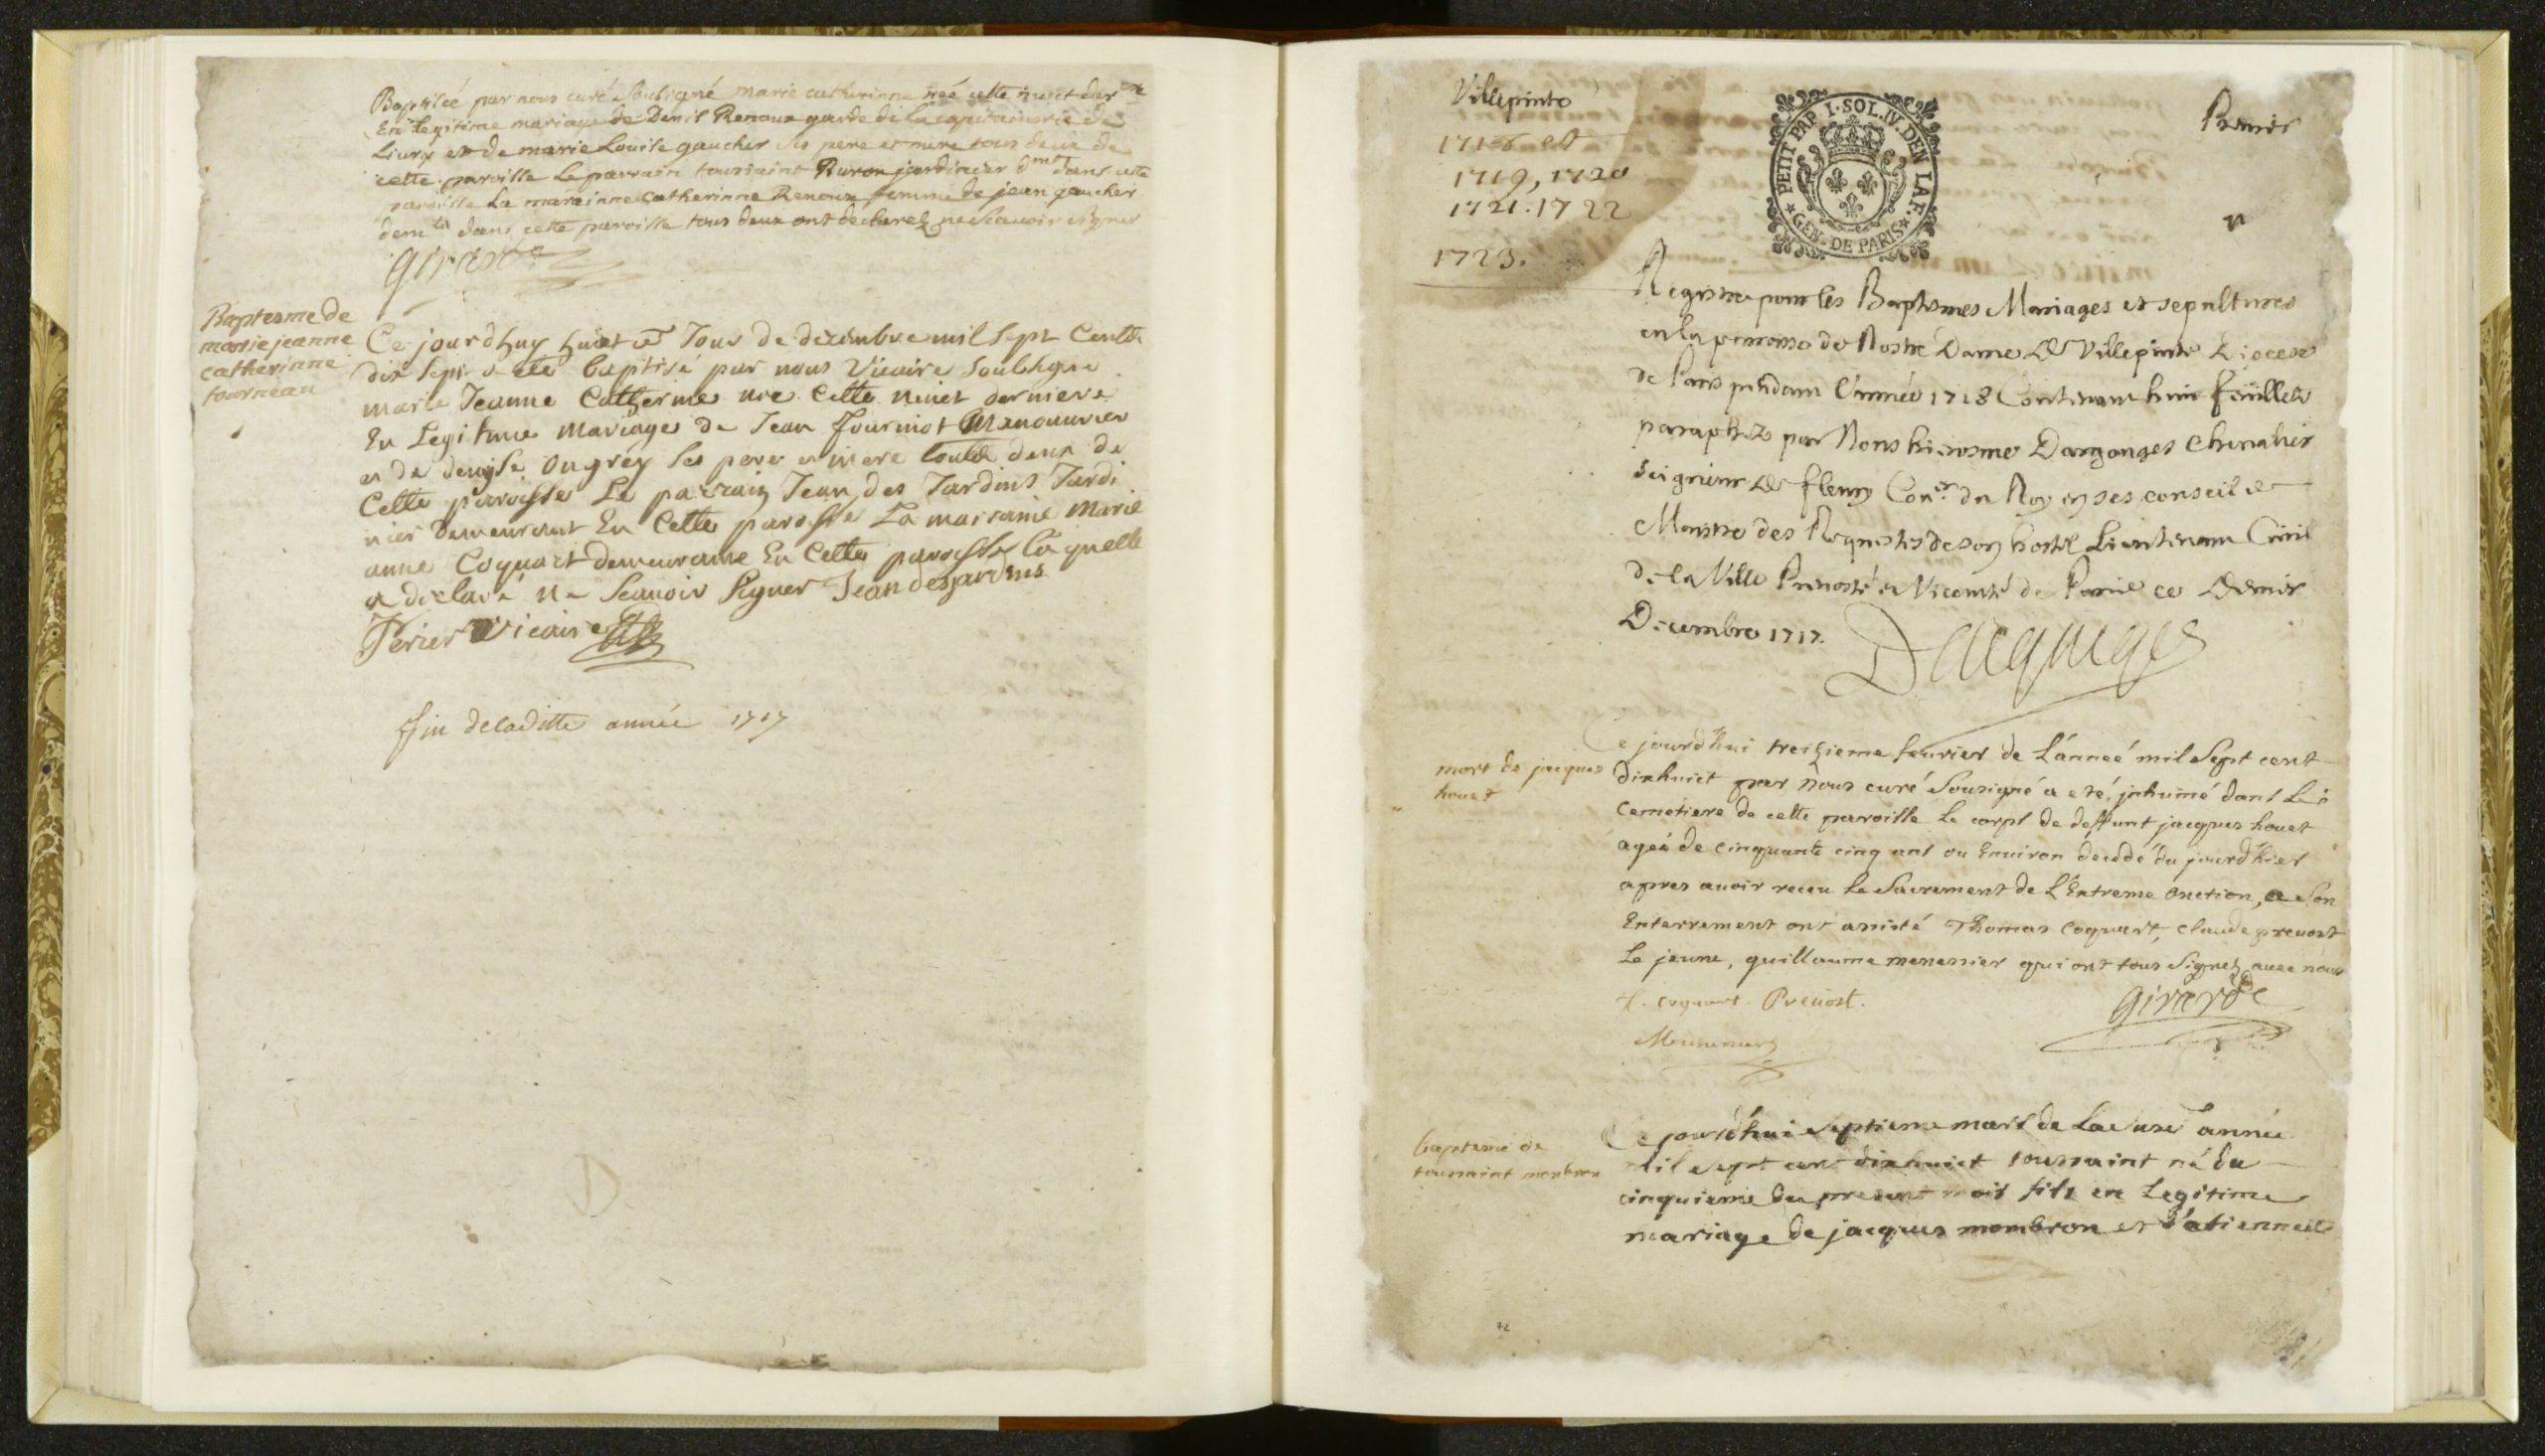 Baptisée par nous curé Soubsigné marie catherinne neé cette nuict der re
En legitime mariage de Denis Renoux garde de la capitainerie de
Liury et de marie Louise gaucher ses pere et mere tous deux de
cette paroisse Le parrain toussaint Buron jardinier dmt dans cette
paroisse La marainne Catherinne Renoux femme de jean gaucher
demte dans cette paroisse tous deux ont declarez ne Scauoir signer
Girard
Baptesme de
marie jeanne
catherinne
fourneau
Ce jourdhuy huict Jour de decembre mil sept Cents
dix sept a été baptisé par nous Vicaire Soubsigne
marie Jeanne Catherine née cette nuict derniere
En Legitime mariage de Jean fourniot Manouurier
et de denise ongréy ses pere et mere touts deux de
Cette paroisse Le parrain Jean des Jardins Jardi
nier demeurant En Cette paroisse La marainne Marie
anne Coquart demeurante En Cette paroisse la quelle
a declaré ne Scauoir Signer Jean desjardins
Perier Vicaire
fin de laditte année 1717
Villepinte
1718 et
1719, 1720
1721. 1722
1723.
PETIT PAP. I. SOL. IV. DEN LA F.
GEN. DE PARIS
Premier
Registre pour les Baptesmes Mariages et sepultures
en la parroisse de Nostre Dame de Villepinte Diocese
de Paris pendant l'année 1718 Contenant huit feüillets
paraphez par Nous hierosme Dargouges Chevalier
Seigneur de fleury Coner du Roy en ses conseils
Maistre des Requestes de son hostel Lieutenant Civil
de la Ville Prevosté et Vicomté de Paris ce
Decembre 1717.
Dargouges
mort de jacques
houet
Ce jourd'hui treizieme feurier de L'anneé mil Sept cent
dixhuict par nous curé Sousigné a eté jnhumé dans Le
Cemetiere de cette paroisse Le corps de deffunt jacques houet
ageé de cinquante cinq ans ou Enuiron decedé du jourd'hier
apres auoir receu Le Sacrement de L'Extreme onction, a Son
Enterrement ont assisté Thomas Coquart, claude preuost
Le jeune, guillaume menessier qui ont tous Signez auec nous
t. coquart Preuost.
Girard
baptesme de
toussaint monbron
Ce jourd'hui septieme mars de La année
mil sept cent dixhuict toussaint né du
cinquieme du present mois fils en Legitime
mariage de jacques mombron et d'